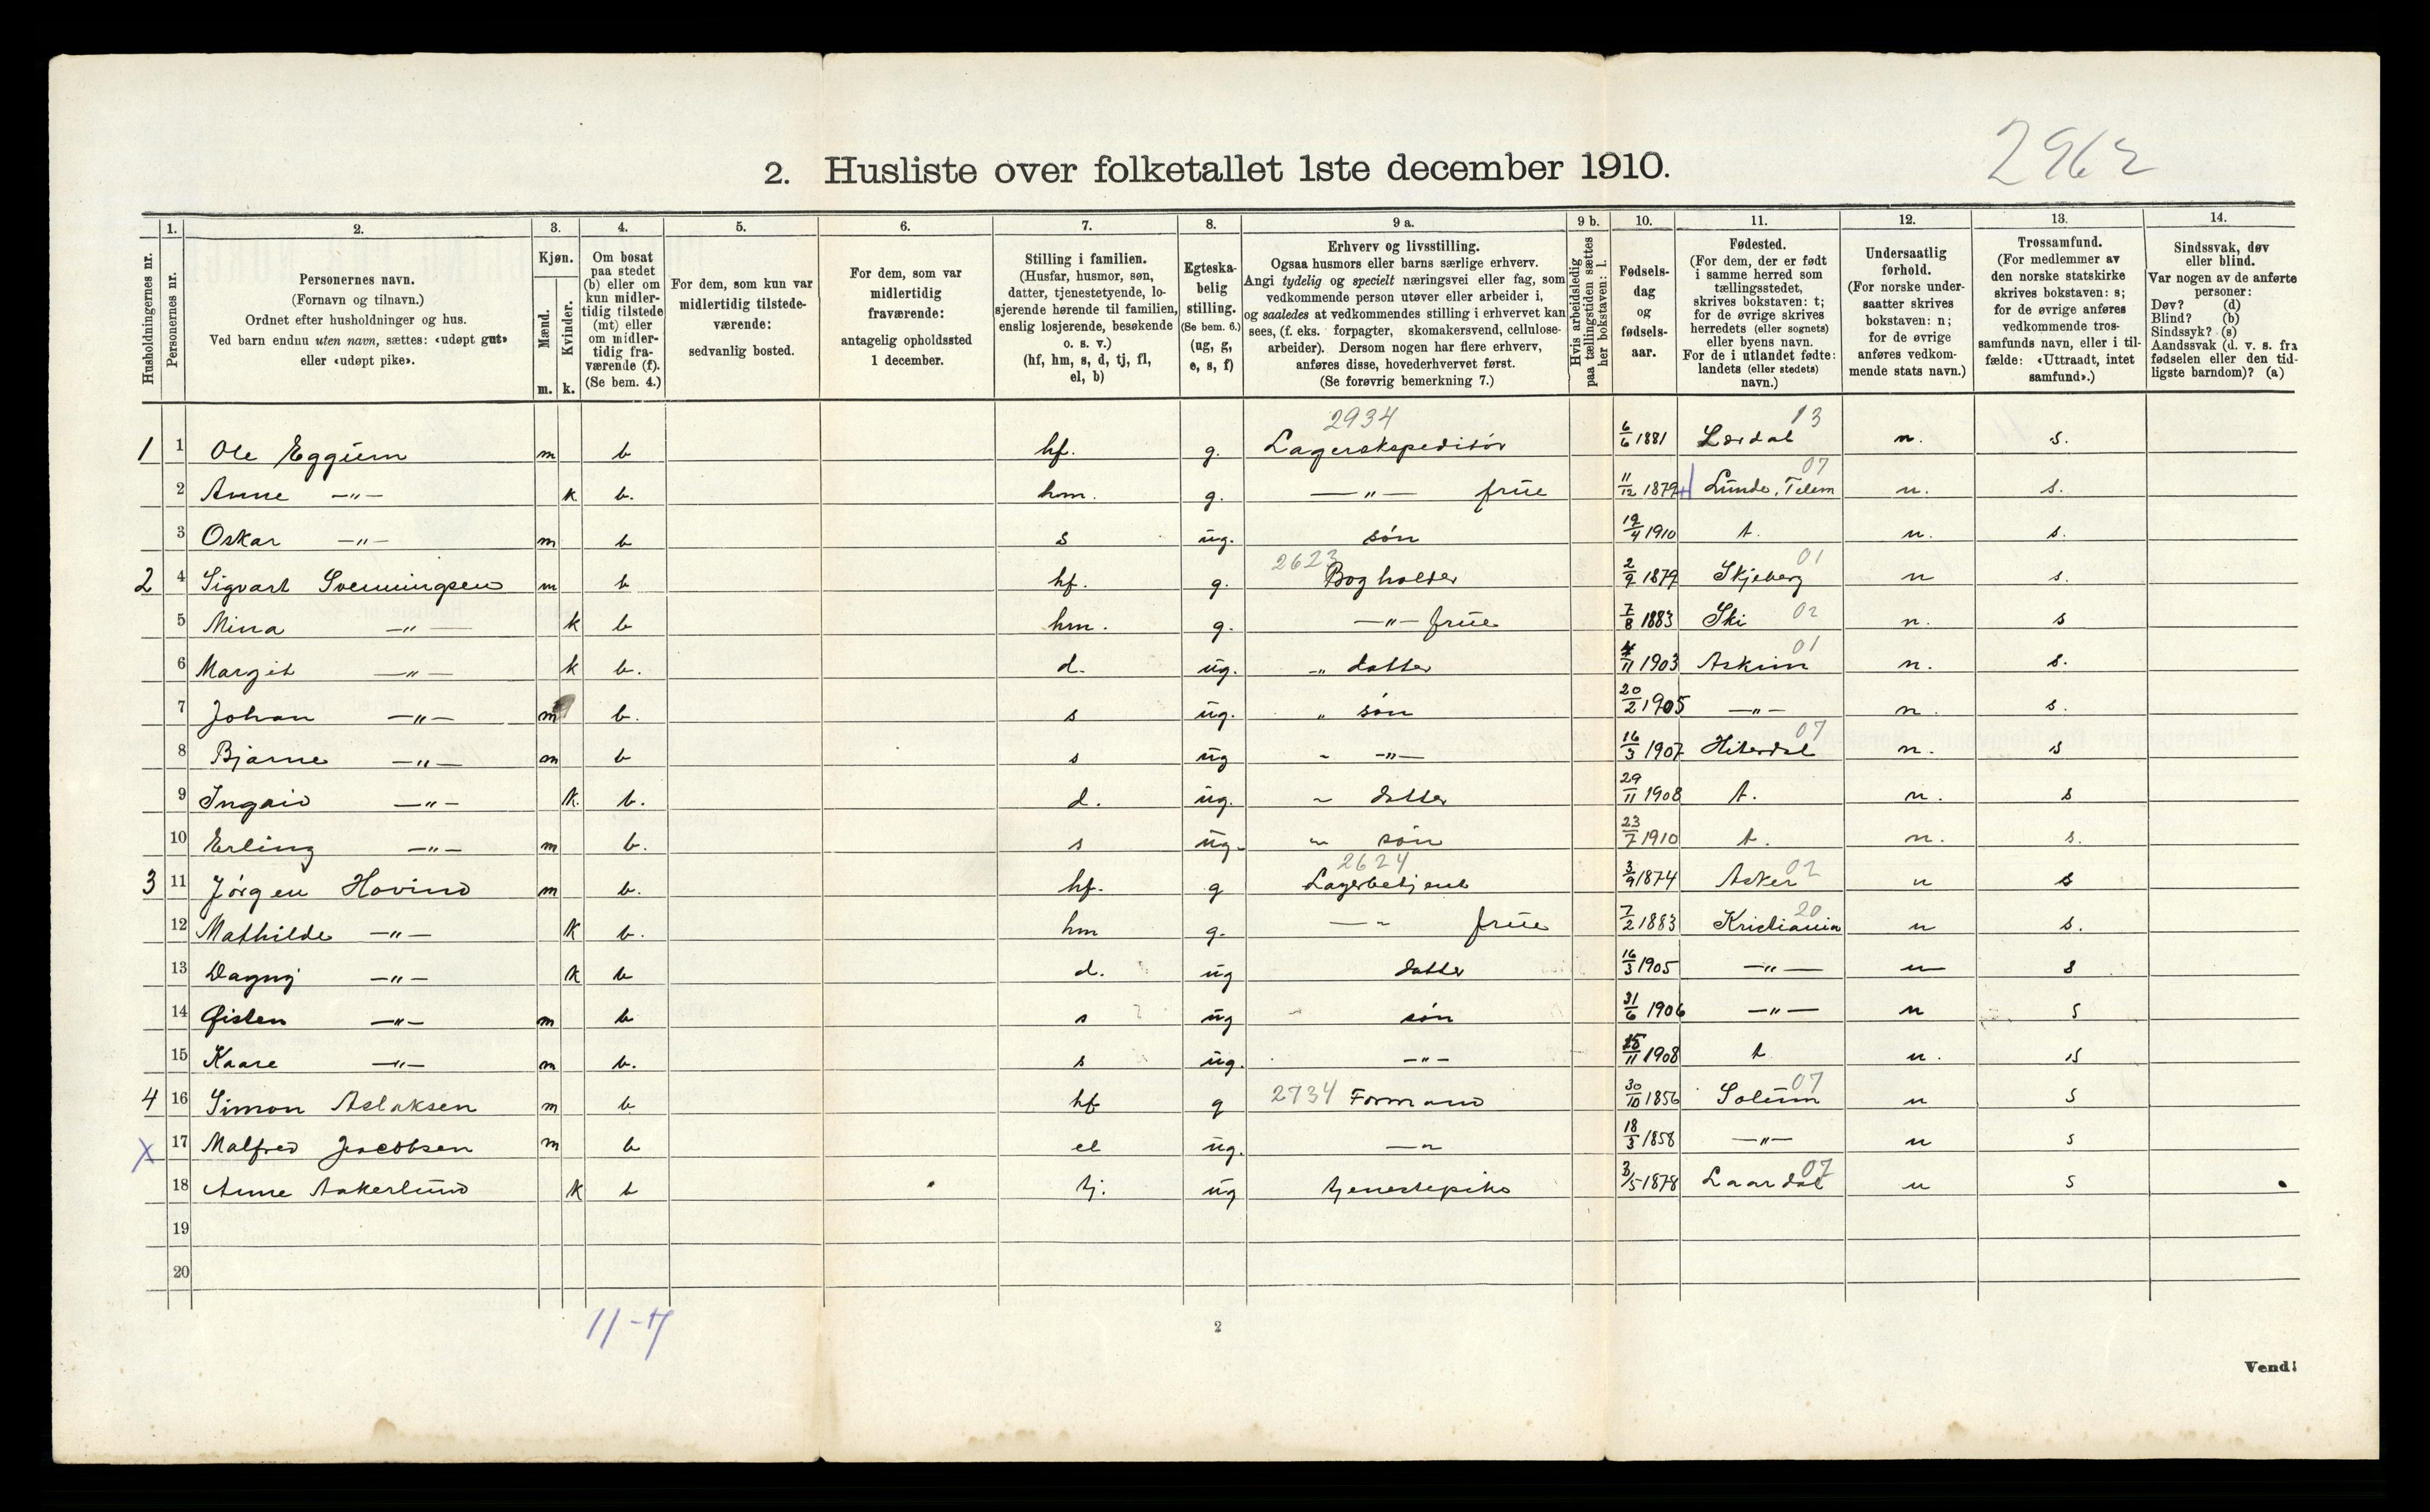 2962
2. Husliste over folketallet 1ste december 1910.
Husholdningernes nr.
1. Personernes nr.
2. Personernes navn. (Fornavn og tilnavn.) Ordnet efter husholdninger og hus. Ved barn endnu uten navn, sættes: «udøpt gut» eller «udøpt pike».
3. Kjøn. Mænd. m. Kvinder. k.
4. Om bosat paa stedet (b) eller om kun midlertidig tilstede (mt) eller om midlertidig fraværende (f). (Se bem. 4.)
5. For dem, som kun var midlertidig tilstedeværende: sedvanlig bosted.
6. For dem, som var midlertidig fraværende: antagelig opholdssted 1 december.
7. Stilling i familien. (Husfar, husmor, søn, datter, tjenestetyende, losjerende hørende til familien, enslig losjerende, besøkende o. s. v.) (hf, hm, s, d, tj, fl, el, b)
8. Egteskabelig stilling. (Se bem. 6.) (ug, g, e, s, f)
9 a. Erhverv og livsstilling. Ogsaa husmors eller barns særlige erhverv. Angi tydelig og specielt næringsvei eller fag, som vedkommende person utøver eller arbeider i, og saaledes at vedkommendes stilling i erhvervet kan sees, (f. eks. forpagter, skomakersvend, cellulosearbeider). Dersom nogen har flere erhverv, anføres disse, hovederhvervet først. (Se forøvrig bemerkning 7.)
9 b. Hvis arbeidsledig paa tællingstiden sættes her bokstaven: l.
10. Fødselsdag og fødselsaar.
11. Fødested. (For dem, der er født i samme herred som tællingsstedet, skrives bokstaven: t; for de øvrige skrives herredets (eller sognets) eller byens navn. For de i utlandet fødte: landets (eller stedets) navn.)
12. Undersaatlig forhold. (For norske undersaatter skrives bokstaven: n; for de øvrige anføres vedkommende stats navn.)
13. Trossamfund. (For medlemmer av den norske statskirke skrives bokstaven: s; for de øvrige anføres vedkommende trossamfunds navn, eller i tilfælde: «Uttraadt, intet samfund».)
14. Sindssvak, døv eller blind. Var nogen av de anførte personer: Døv? (d) Blind? (b) Sindssyk? (s) Aandssvak (d. v. s. fra fødselen eller den tidligste barndom)? (a)
1 1 Ole Eggum m b hf. g. 2934 Lagerekspeditør 6/6 1881 Lærdal 13 n. s.
2 Anne —"— k b. hm. g. —"— frue 11/12 1879 Lunde, Telem 07 n. s.
3 Oskar —"— m b s ug. søn 19/4 1910 t. n. s.
2 4 Sigvart Svenningsen m b hf. g. 2623 Bogholder 2/9 1879 Skjeberg 01 n s.
5 Mina —"— k b hm. g. —"— frue 7/8 1883 Ski 02 n. s
6 Margit —"— k b. d. ug. " datter /11 1903 Askim 01 n. s.
7 Johan —"— m b. s ug. " søn 20/2 1905 —"— n. s.
8 Bjarne —"— m b s ug " —"— 16/3 1907 Hiterdal 07 n. s
9 Ingrid —"— k. b. d. ug. " datter 29/11 1908 t. n. s
10 Erling —"— m b. s ug. " søn 23/7 1910 t. n. s.
3 11 Jørgen Hovind m b. hf. g 2624 Lagerbetjent 3/9 1874 Asker 02 n s
12 Mathilde —"— k b. hm g. —"— frue 7/2 1883 Kristiania 20 n s.
13 Dagny —"— k b d. ug datter 16/3 1905 —"— n s
14 Øisten —"— m b s ug søn 31/6 1906 —"— n s
15 Kaare —"— m b. s ug. —"— /11 1908 t n. s
4 16 Simon Aslaksen m b hf g 2734 Formand 30/10 1856 Solum 07 n s
X 17 Malfred Jacobsen m b el ug. —"— 18/3 1858 —"— n s
18 Anne Aakerlund k b tj. ug tjenestepike 3/5 1878 Laardal 07 n s
19
20
11-7
2
Vend!